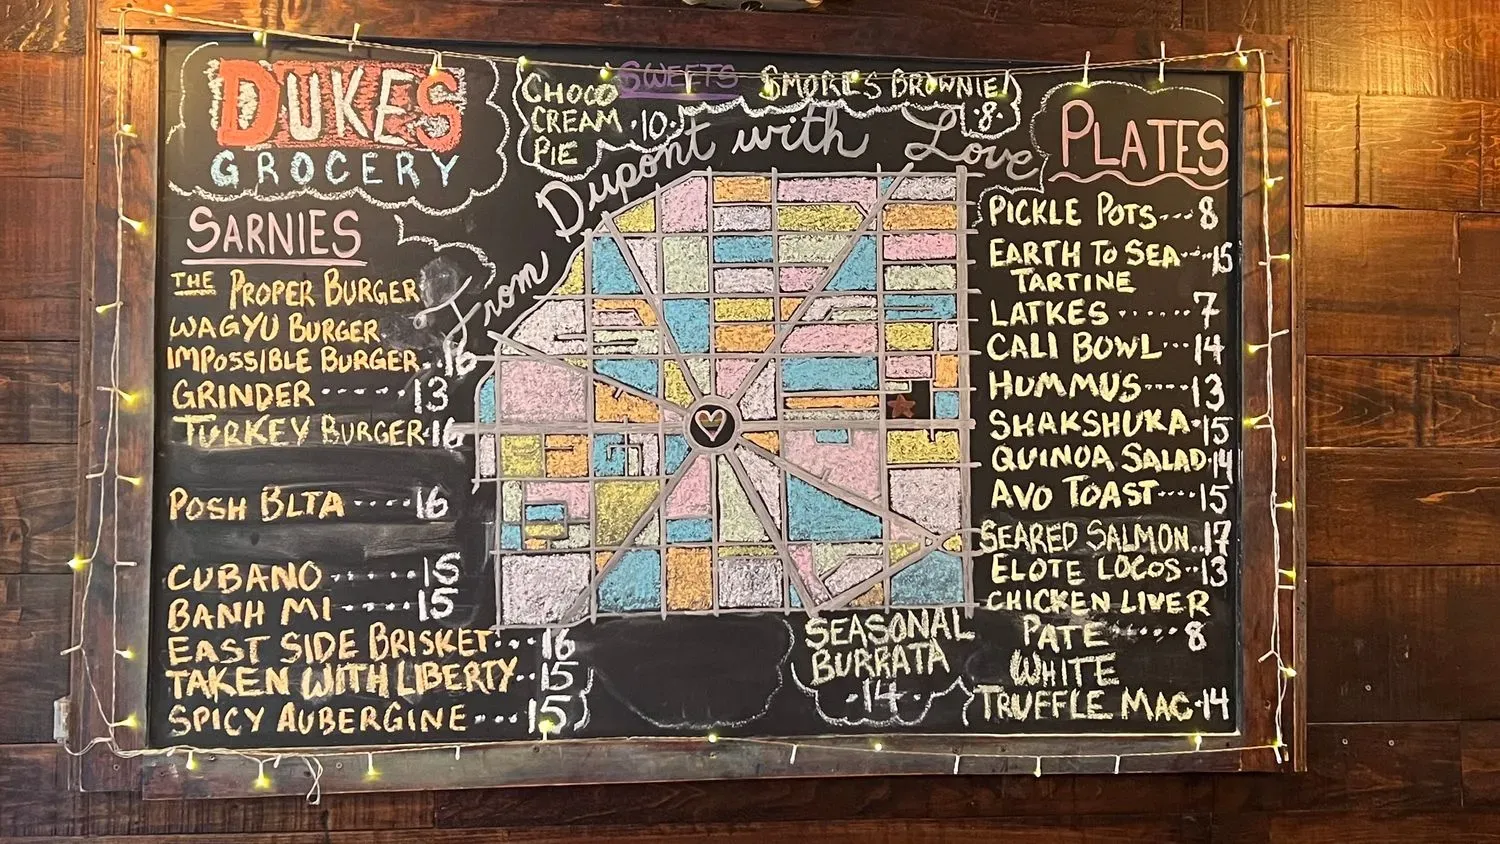 DUKES
GROCERY
SARNIES
THE PROPER BURGER
WAGYU BURGER
IMPOSSIBLE BURGER..16
GRINDER ------13
TURKEY BURGER·16
POSH BLTA ----16
CUBANO ------15
BANH MI ----15
EAST SIDE BRISKET...16
TAKEN WITH LIBERTY..15
SPICY AUBERGINE ---15
SWEETS
CHOCO
CREAM ·10·
PIE
SMORE'S BROWNIE
·8·
From Dupont with Love
SEASONAL
BURRATA
·14·
PLATES
PICKLE POTS---8
EARTH TO SEA---15
TARTINE
LATKES ......7
CALI BOWL---14
HUMMUS----13
SHAKSHUKA·15
QUINOA SALAD·14
AVO TOAST----15
SEARED SALMON..17
ELOTE LOCOS--13
CHICKEN LIVER
PATE ·····8
WHITE
TRUFFLE MAC·14